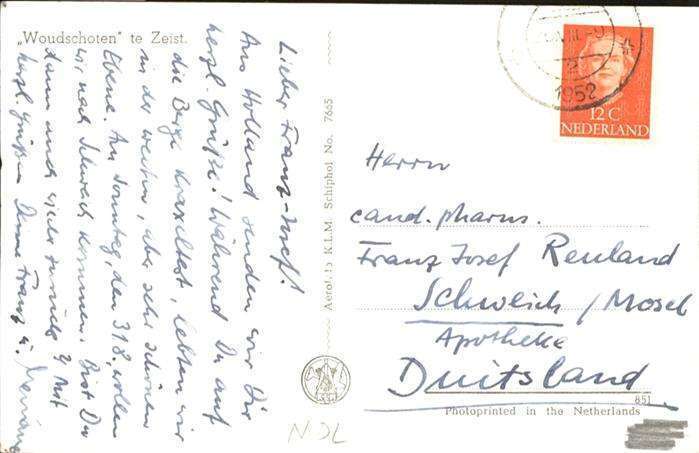 „Woudschoten" te Zeist.
Lieber Franz-Josef!
Aus Holland senden wir Dir
herzl. Grüße! Während Du auf
die Berge kraxeltest, lebten wir
in der weiten, aber sehr schönen
Ebene. Am Sonntag, den 31.8. wollen
wir nach Schweich kommen. Bist Du
dann auch wieder zurück? Mit
herzl. Grüßen Deine Franz u.
Aerof. is K.L.M. Schiphol No. 7665
1952
12 C
NEDERLAND
Herrn
cand. pharm.
Franz Josef Reuland
Schweich / Mosel
Apotheke
Duitsland
851
Photoprinted in the Netherlands
NDL